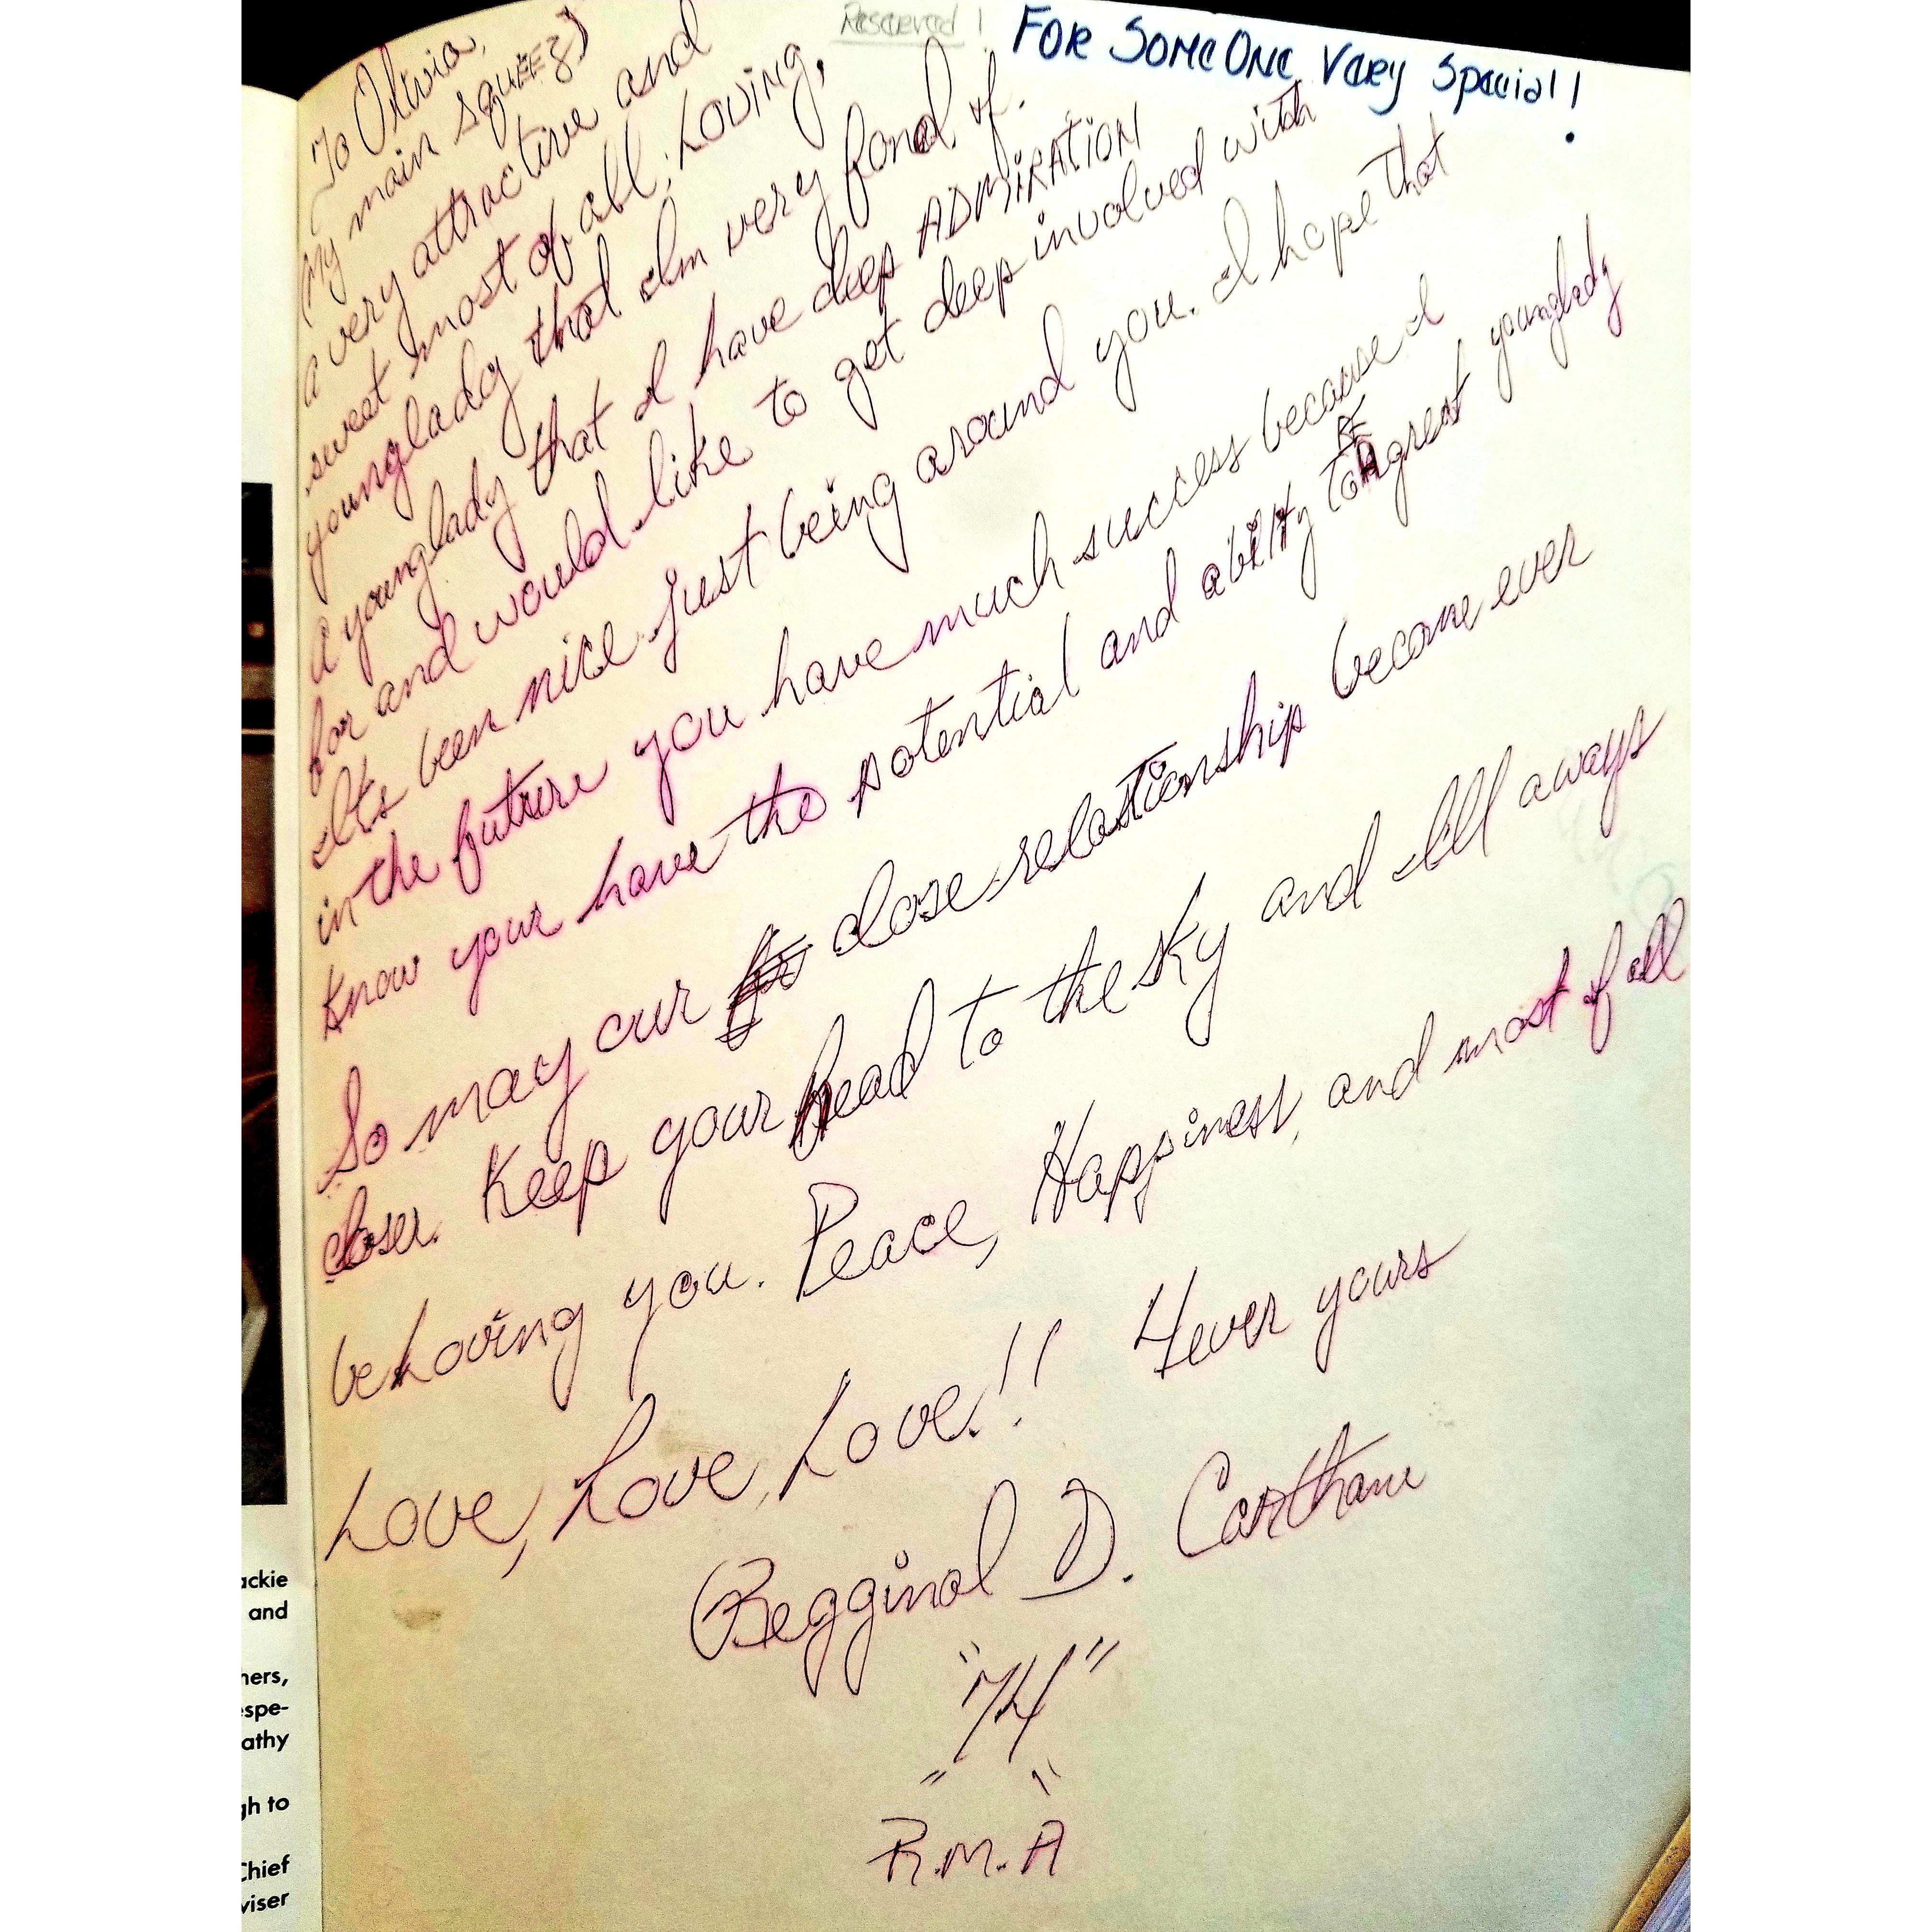 Reserved! FOR SOMEONE Very Special!
To Olivia,
(My main squEEz)
a very attractive and
sweet most of all; Loving,
younglady that I'm very fond of.
A younglady that I have deep ADMiRATiON
for and would like to get deep involved with
It's been nice just being around you. I hope that
in the future you have much success because I
know your have the potential and ability to BE A great younglady
So may our close relationship become ever
closer. Keep your head to the sky and I'll aways
be Loving you. Peace, Happiness, and most of all
Love, Love, Love!! 4ever yours
Regginal D. Carthane
"74"
"R.M.A"
ackie
and
ners,
espe-
athy
gh to
Chief
viser